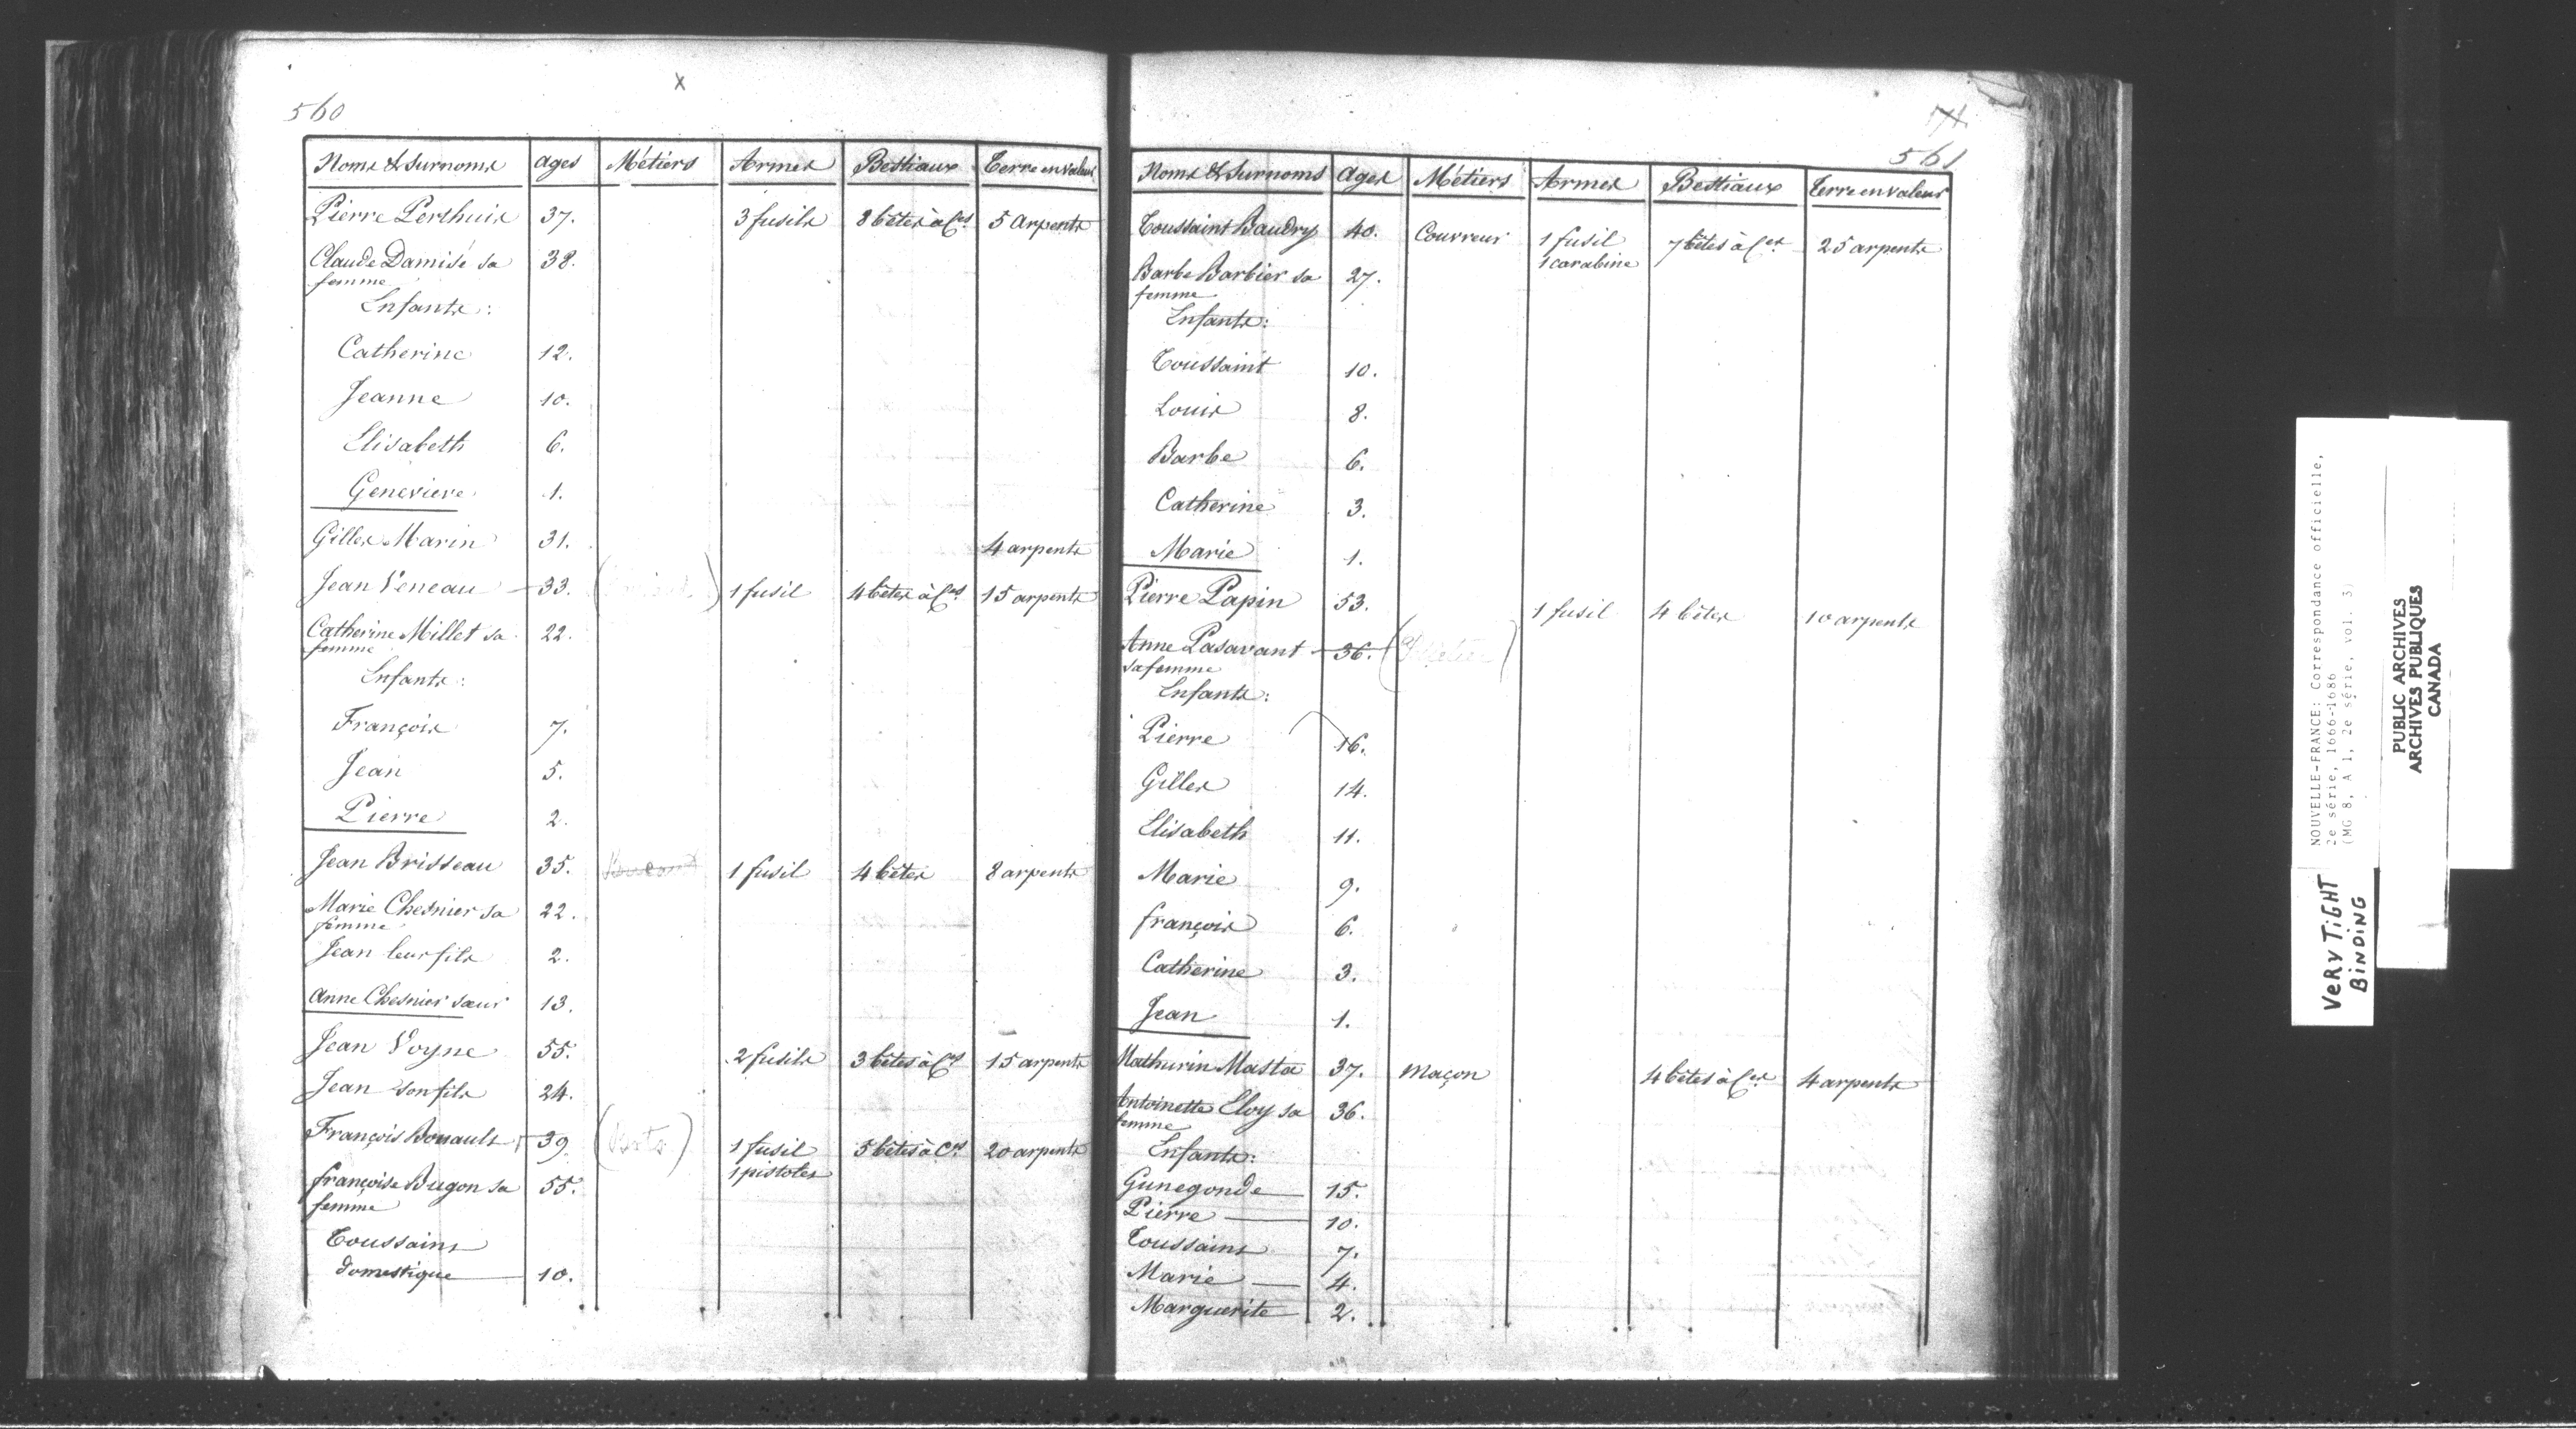 x
560
Noms & Surnoms ages Métiers Armes Bestiaux Terre en valeur
Pierre Perthuis 37. 3 fusils 8 bêtes à Ces 5 Arpents
Claude Damisé sa 38.
femme
Enfants:
Catherine 12.
Jeanne 10.
Elisabeth 6.
Genevieve 1.
Gilles Marin 31. 4 arpents
Jean Veneau 33. 1 fusil 4 bêtes à Ces 15 arpents
Catherine Millet sa 22.
femme
Enfants:
François 7.
Jean 5.
Pierre 2.
Jean Brisseau 35. 1 fusil 4 bêtes 8 arpents
Marie Chesnier sa 22.
femme
Jean leur fils 2.
Anne Chesnier sœur 13.
Jean Voyne 55. 2 fusils 3 bêtes à Ces 15 arpents
Jean son fils 24.
François Bouault 39. 1 fusil 5 bêtes à Ces 20 arpents
1 pistolet
françoise Bugon sa 55.
femme
Toussains
domestique 10.
561
Noms & Surnoms Ages Métiers Armes Bestiaux Terre en valeur
Toussaint Baudry 40. Couvreur 1 fusil 7 bêtes à Ces 25 arpents
1 carabine
Barbe Barbier sa 27.
femme
Enfants:
Toussaint 10.
Louis 8.
Barbe 6.
Catherine 3.
Marie 1.
Pierre Papin 53. 1 fusil 4 bêtes 10 arpents
Anne Pasavant 36.
sa femme
Enfants:
Pierre 16.
Gilles 14.
Elisabeth 11.
Marie 9.
françois 6.
Catherine 3.
Jean 1.
Mathurin Masta 37. Maçon 4 bêtes à Ces 4 arpents
Antoinette Eloy sa 36.
femme
Enfants:
Gunegonde 15.
Pierre 10.
Toussains 7.
Marie 4.
Marguerite 2.
NOUVELLE-FRANCE: Correspondance officielle,
2e série, 1666-1686
(MG 8, A 1, 2e série, vol. 3)
PUBLIC ARCHIVES
ARCHIVES PUBLIQUES
CANADA
VERY TIGHT
BINDING